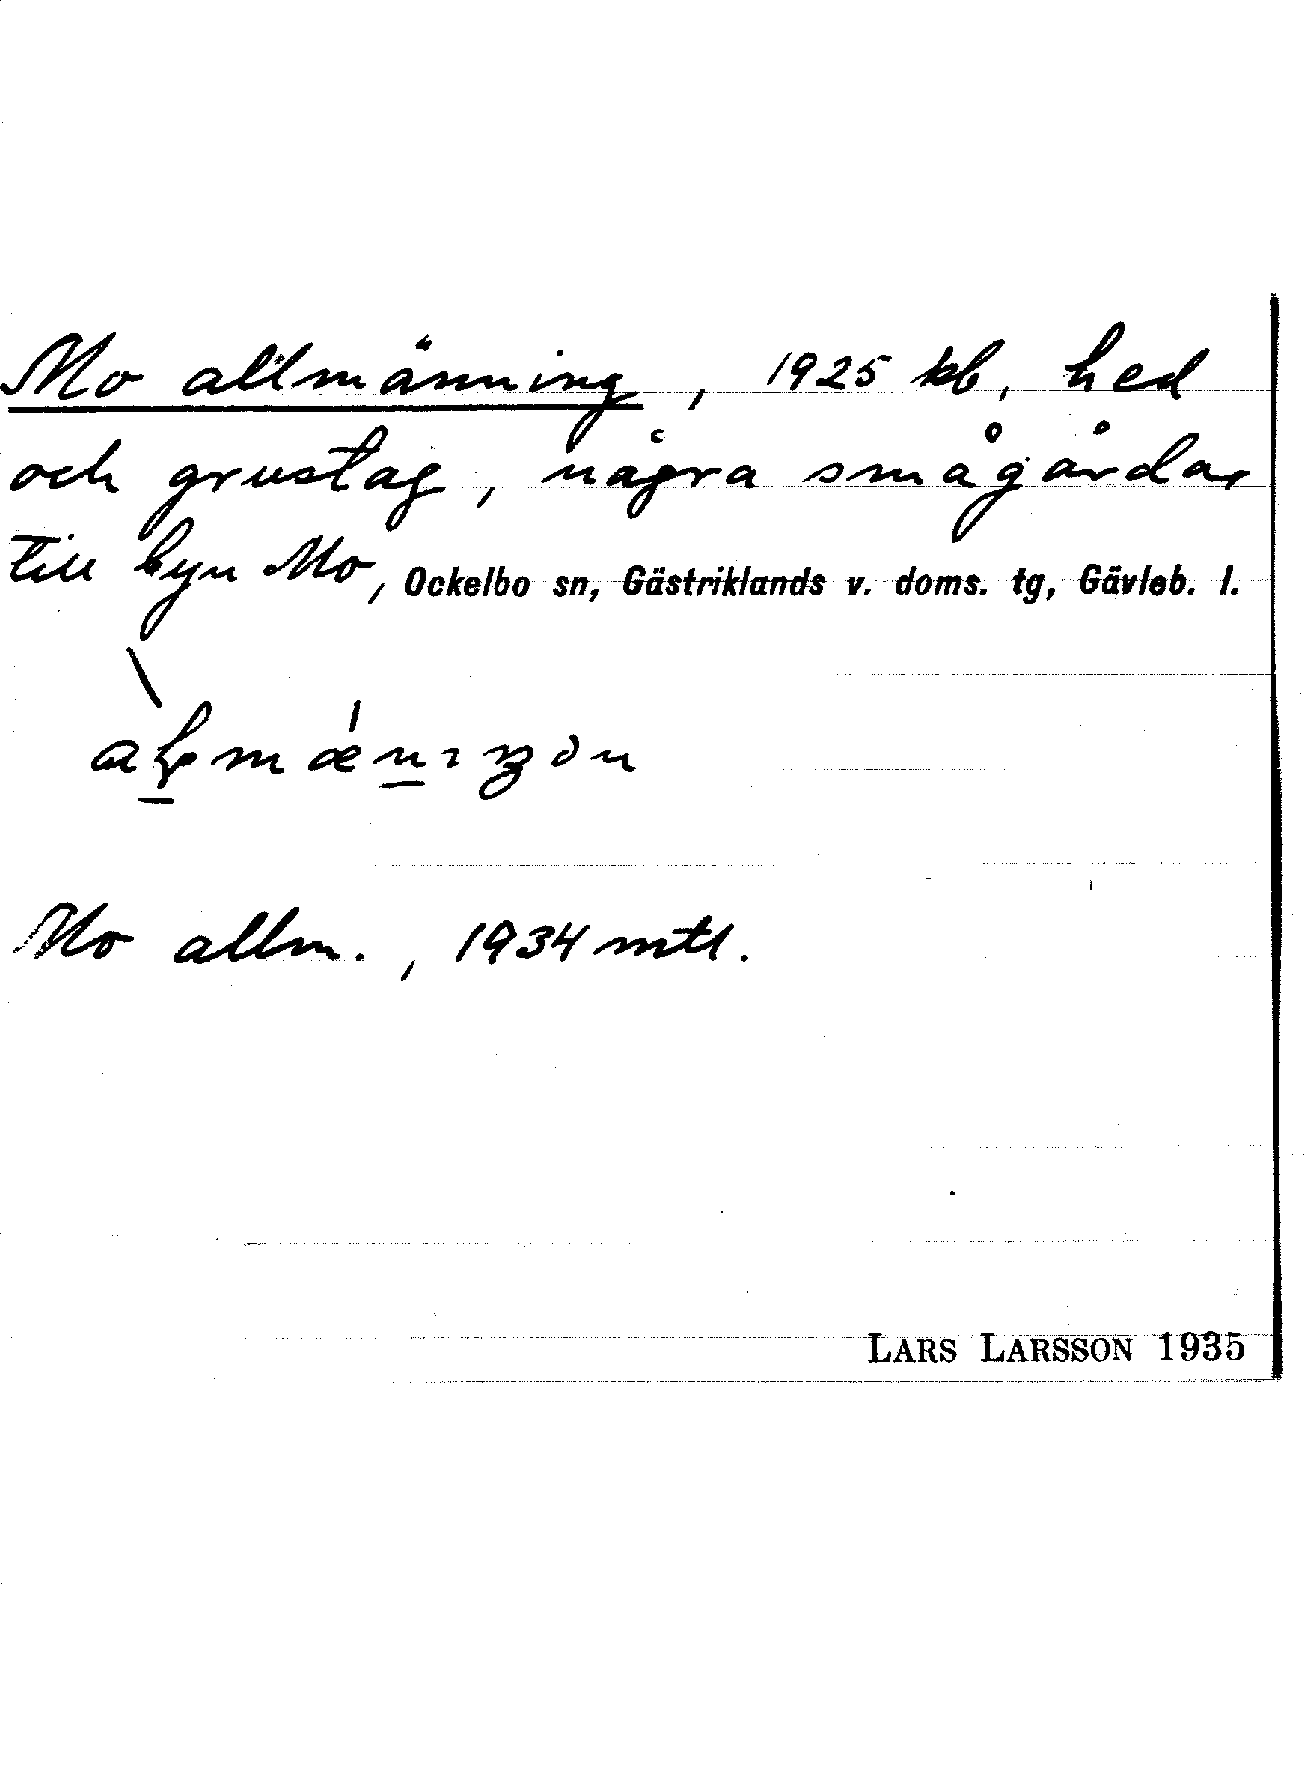 Mo allmänning, 1925 kb, hed
och grustag, några smågårdar
till byn Mo, Ockelbo sn, Gästriklands v. doms. tg, Gävleb. l.
Mo allm., 1934 mtl.
LARS LARSSON 1935